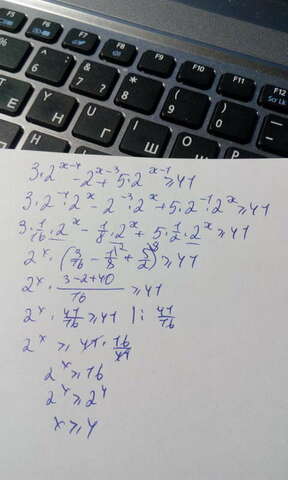 F5 F6 F7 F8 F9 F10 F11 F12
Sc Lk
% 5 ^ 6 : & 7 ? * 8 ( 9 ) 0
Е Н Г Ш
3·2^{x-4} - 2^{x-3} + 5·2^{x-1} ≥ 41
3·2^{-4}·2^x - 2^{-3}·2^x + 5·2^{-1}·2^x ≥ 41
3·1/16·2^x - 1/8·2^x + 5·1/2·2^x ≥ 41
2^x·(3/16 - 1/8 + 5/2) ≥ 41
2^x·(3-2+40)/16 ≥ 41
2^x·41/16 ≥ 41 |: 41/16
2^x ≥ 41·16/41
2^x ≥ 16
2^x ≥ 2^4
x ≥ 4